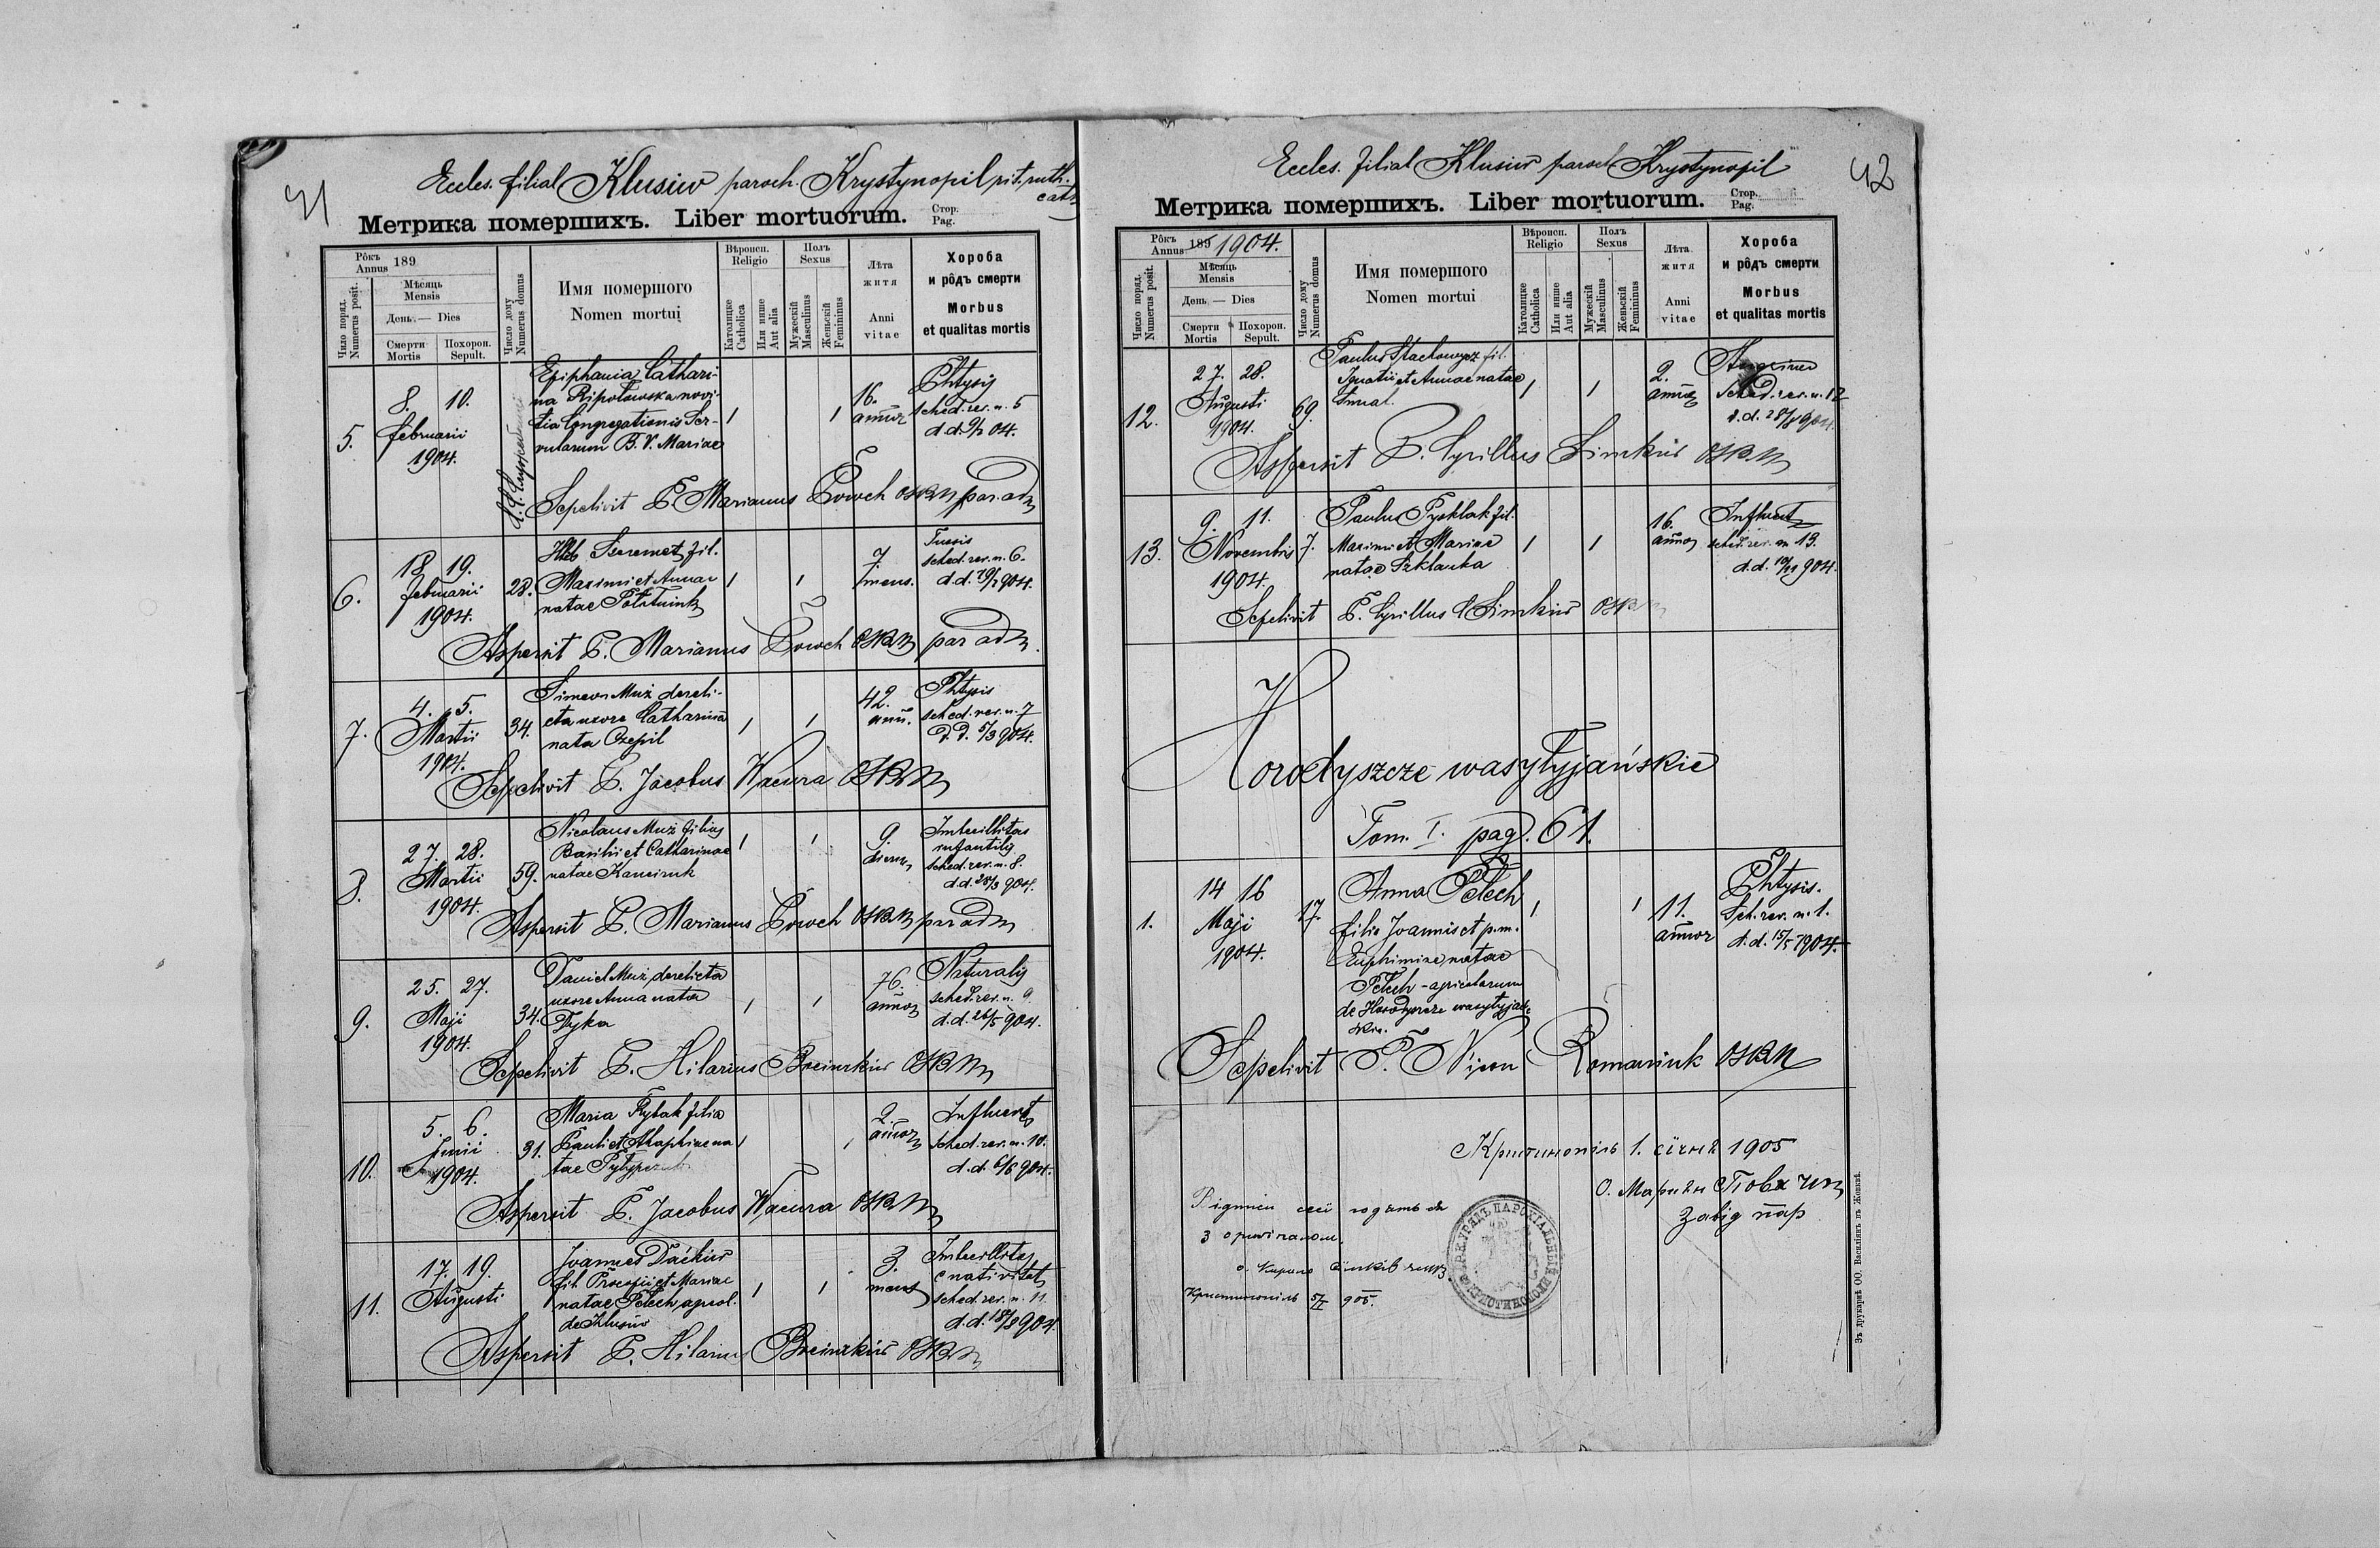 41
Eccles. filial Klusiw paroch. Krystynopil rit. ruth.
cath
Метрика помершихъ. Liber mortuorum.
Стор.
Pag.
Рôкъ
Annus 189
Мѣсяць
Mensis
День — Dies
Число поряд.
Numerus posit.
Смерти
Mortis
Похорон.
Sepult.
Число дому
Numerus domus
Имя помершого
Nomen mortui
Вѣроисп.
Religio
Католицке
Catholica
Или инше
Aut alia
Полъ
Sexus
Мужескій
Masculinus
Женьскій
Femininus
Лѣта
житя
Anni
vitae
Хороба
и рôдъ смерти
Morbus
et qualitas mortis
5.
8. 10.
februarii
1904.
Epiphania Cathari-
na Ripolowska novi-
tia Congregationis Ser-
vularum B. V. Mariae
16.
annor
Phtysis
sched. rev. n. 5
d.d. 9/2 04.
Sepelivit P. Marianus Powch OSBM par. adm
6.
18. 19.
februarii
1904.
28.
Hlib Szeremet fil.
Maximi et Annae
natae
7
mens.
Tussis
sched. rev. n. 6.
d.d. 19/2 904.
Aspersit P. Marianus Powch OSBM par adm.
7.
4. 5.
Martii
1904.
34.
Simeon Muż dereli-
cta uxore Catharina
nata Czepil
42.
ann.
Phtysis
sched. rev. n. 7
d. d. 5/3 904.
Sepelivit P. Jacobus Wacura OSBM
8.
27. 28.
Martii
1904.
59.
Nicolaus Muż filius
Basilii et Catharinae
natae
9.
dierum
Imbecillitas
infantilis
sched. rev. n. 8.
d.d. 28/3 904.
Aspersit P. Marianus Powch OSBM par adm
9.
25. 27.
Maji
1904.
34.
Daniel Muż, derelicta
uxore Anna nata
Dyka
76.
annor
Naturalis
sched. rev. n. 9
d.d. 26/5 904.
Sepelivit P. Hilarius OSBM
10.
5. 6.
Junii
1904.
31.
Maria Rybak filia
Pauli et Ahaphiae na
tae
2.
annor
Influent
sched. rev. n. 10.
d.d. 6/6 904.
Aspersit P. Jacobus Wacura OSBM
11.
17. 19.
Augusti
Joannes Daćkiw
fil. Procopii et Mariae
natae Pełech, agricol.
de Klusiw
3.
mens
Imbecillitas
e nativitat
sched. rev. n. 11.
d.d. 18/8 904.
Aspersit P. Hilarius OSBM
42
Eccles. filial Klusiw paroch Krystynopil
Метрика помершихъ. Liber mortuorum.
Стор.
Pag.
Рôкъ
Annus 189 1904.
Мѣсяць
Mensis
День — Dies
Число поряд.
Numerus posit.
Смерти
Mortis
Похорон.
Sepult.
Число дому
Numerus domus
Имя помершого
Nomen mortui
Вѣроисп.
Religio
Католицке
Catholica
Или инше
Aut alia
Полъ
Sexus
Мужескій
Masculinus
Женьскій
Femininus
Лѣта
житя
Anni
vitae
Хороба
и рôдъ смерти
Morbus
et qualitas mortis
12.
27. 28.
Augusti
1904.
69.
Paulus Stachowycz fil.
Ignatii et Annae natae
2.
annor
sched. rev. n. 12
d.d. 28/8 904.
Aspersit P. Cyrillus Simkiw OSBM
13.
9. 11.
Novembris
1904.
7.
Paulus Pysklak fil.
Maximi et Mariae
natae Szklanka
16.
annor
Influent
sched. rev. n 13.
d.d. 10/11 904.
Sepelivit P. Cyrillus Simkiw OSBM
Horodyszcze wasylyjańskie
Tom. I. pag. 61.
1.
14 16
Maji
1904.
17.
Anna Pełech
filia Joannis et p.m.
Euphimiae, natae
Pełech - agricolarum
de Horodyszcze wasylyjań-
skie.
11.
annor
Phtysis.
Sch. rev. n. 1.
d.d. 15/5 904.
Sepelivit P. Nicon Romaniuk OSBM
Кристинопіль 1. січня 1905
О. Маріян Повх чсвв
Завід пар
з оригіналом.
о. Кирило Сїмків чсвв
Кристинопіль 5/II 905.
Зъ друкарнѣ ОО. Василіянъ въ Жовквѣ.